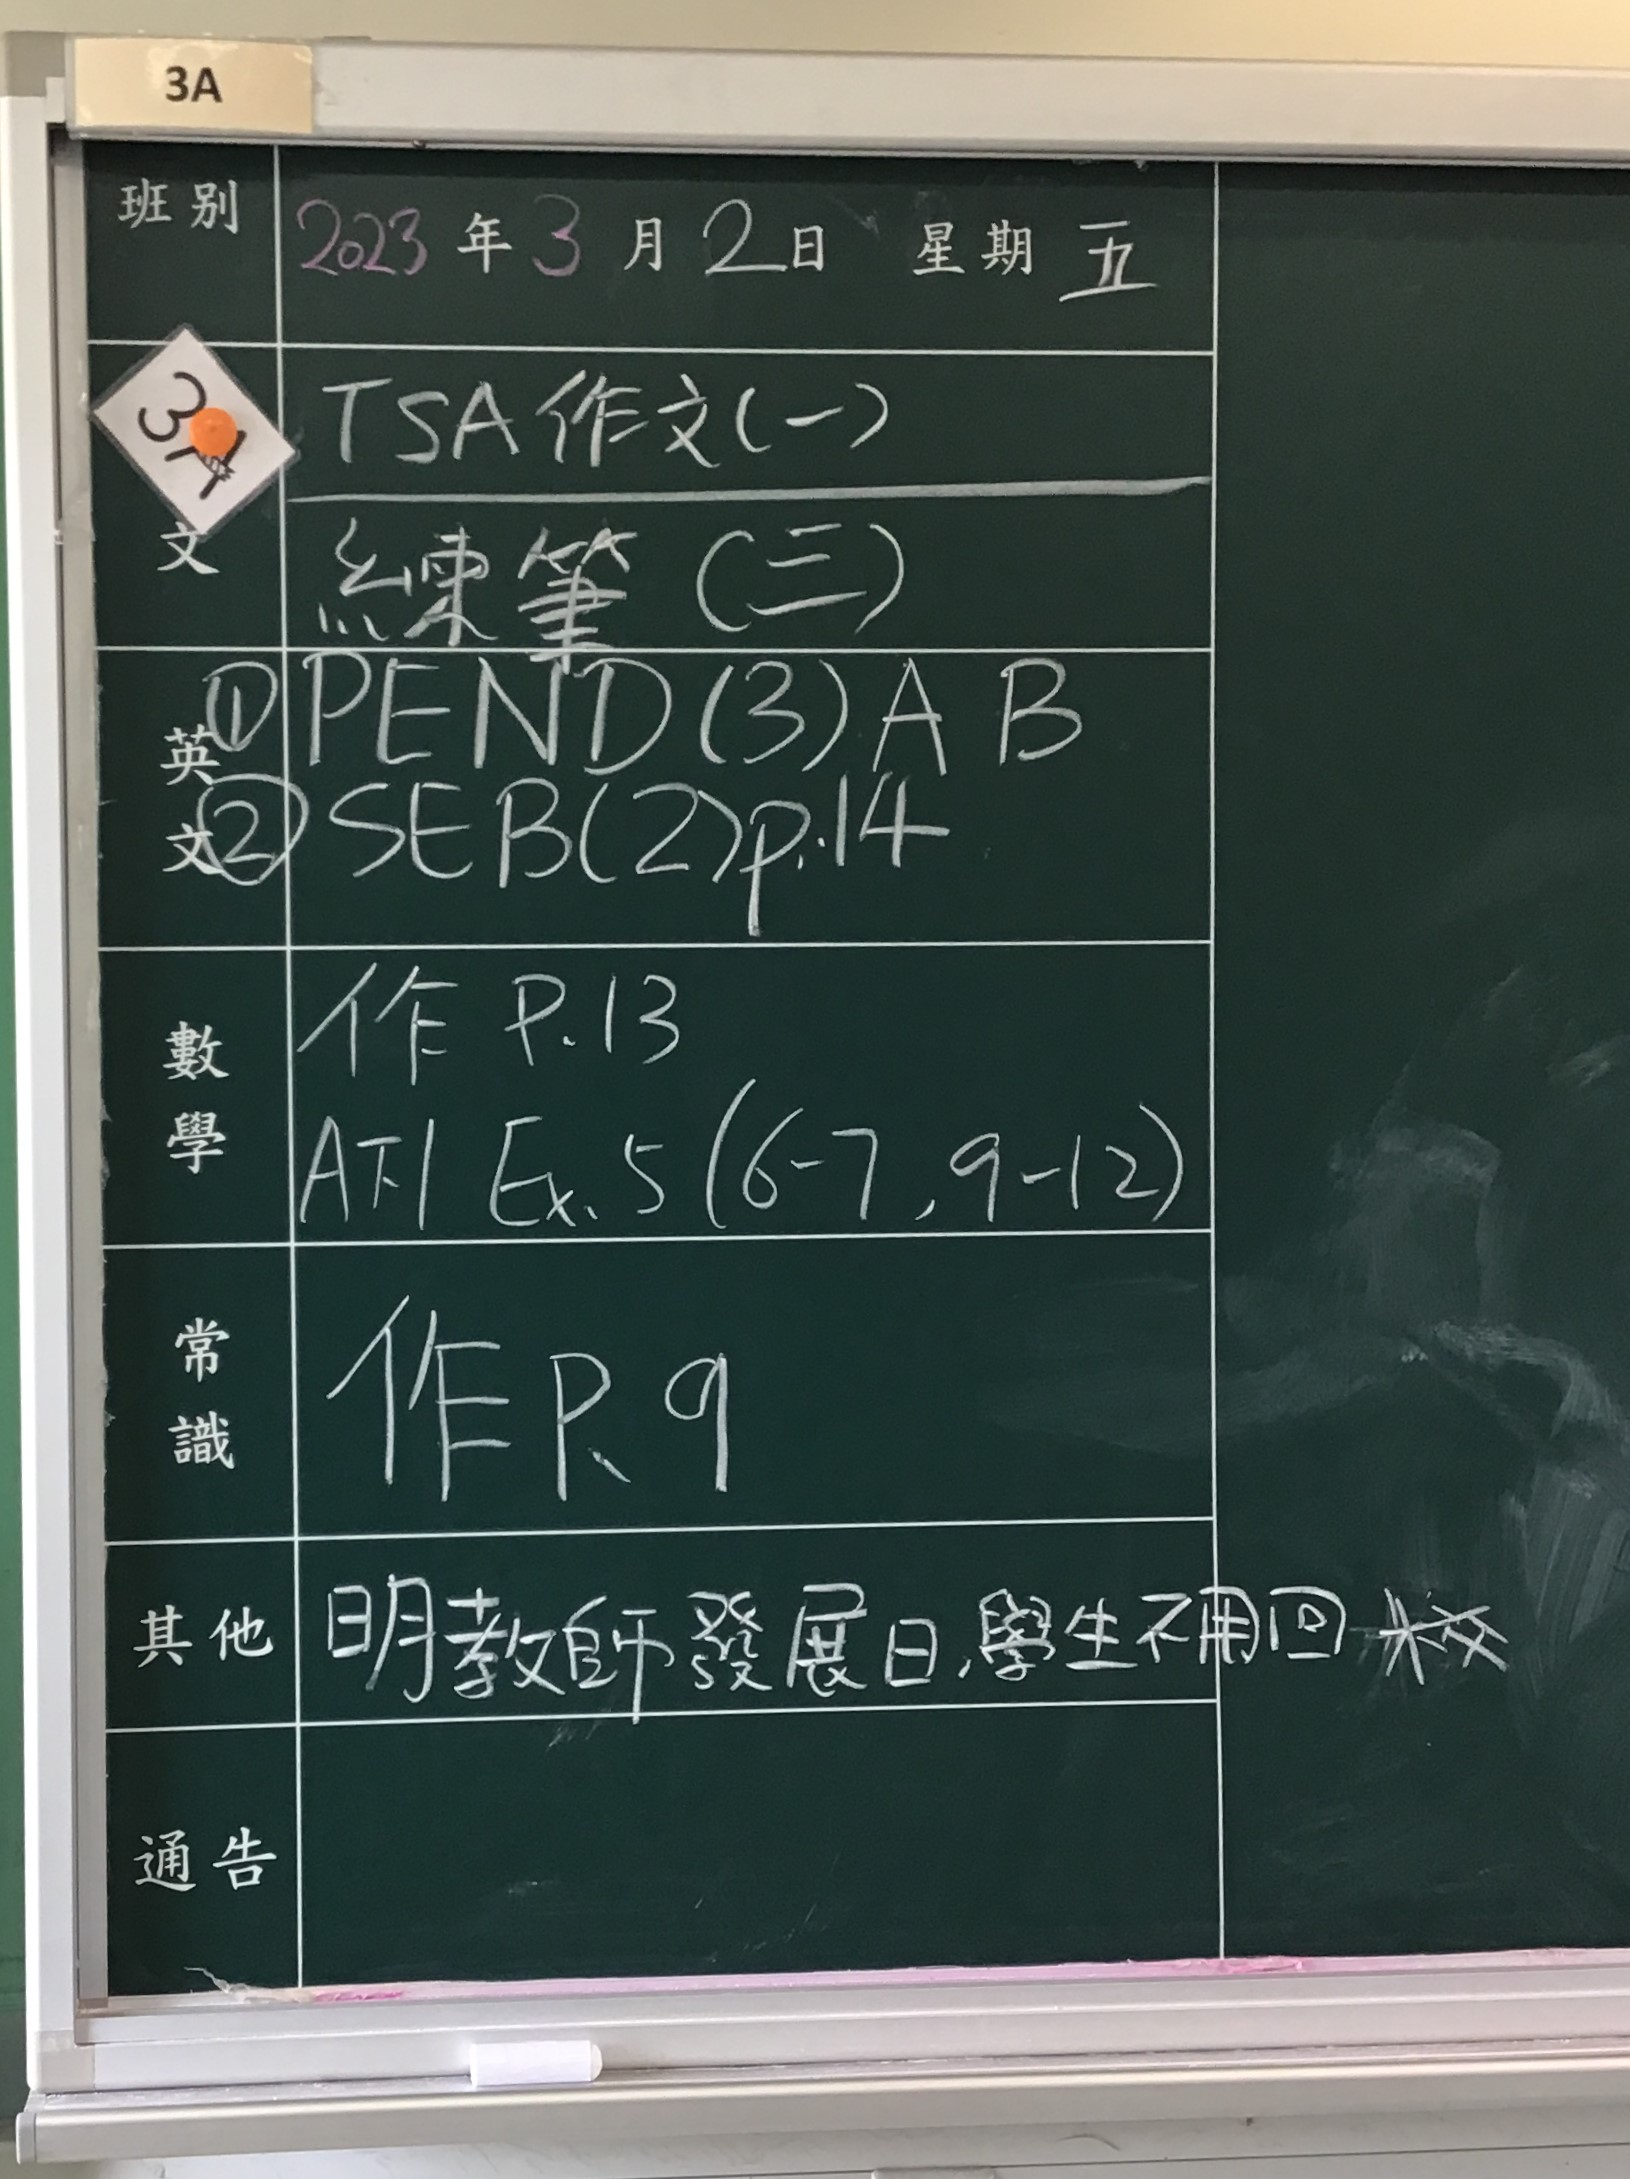 3A
班別 2023年3月2日 星期五
3A
文
TSA 作文(一)
練筆 (三)
英文
① PEND(3) A B
② SEB(2) p.14
數學
作 P.13
AT1 Ex. 5 (6-7, 9-12)
常識
作 P. 9
其他 明教師發展日,學生不用回校
通告